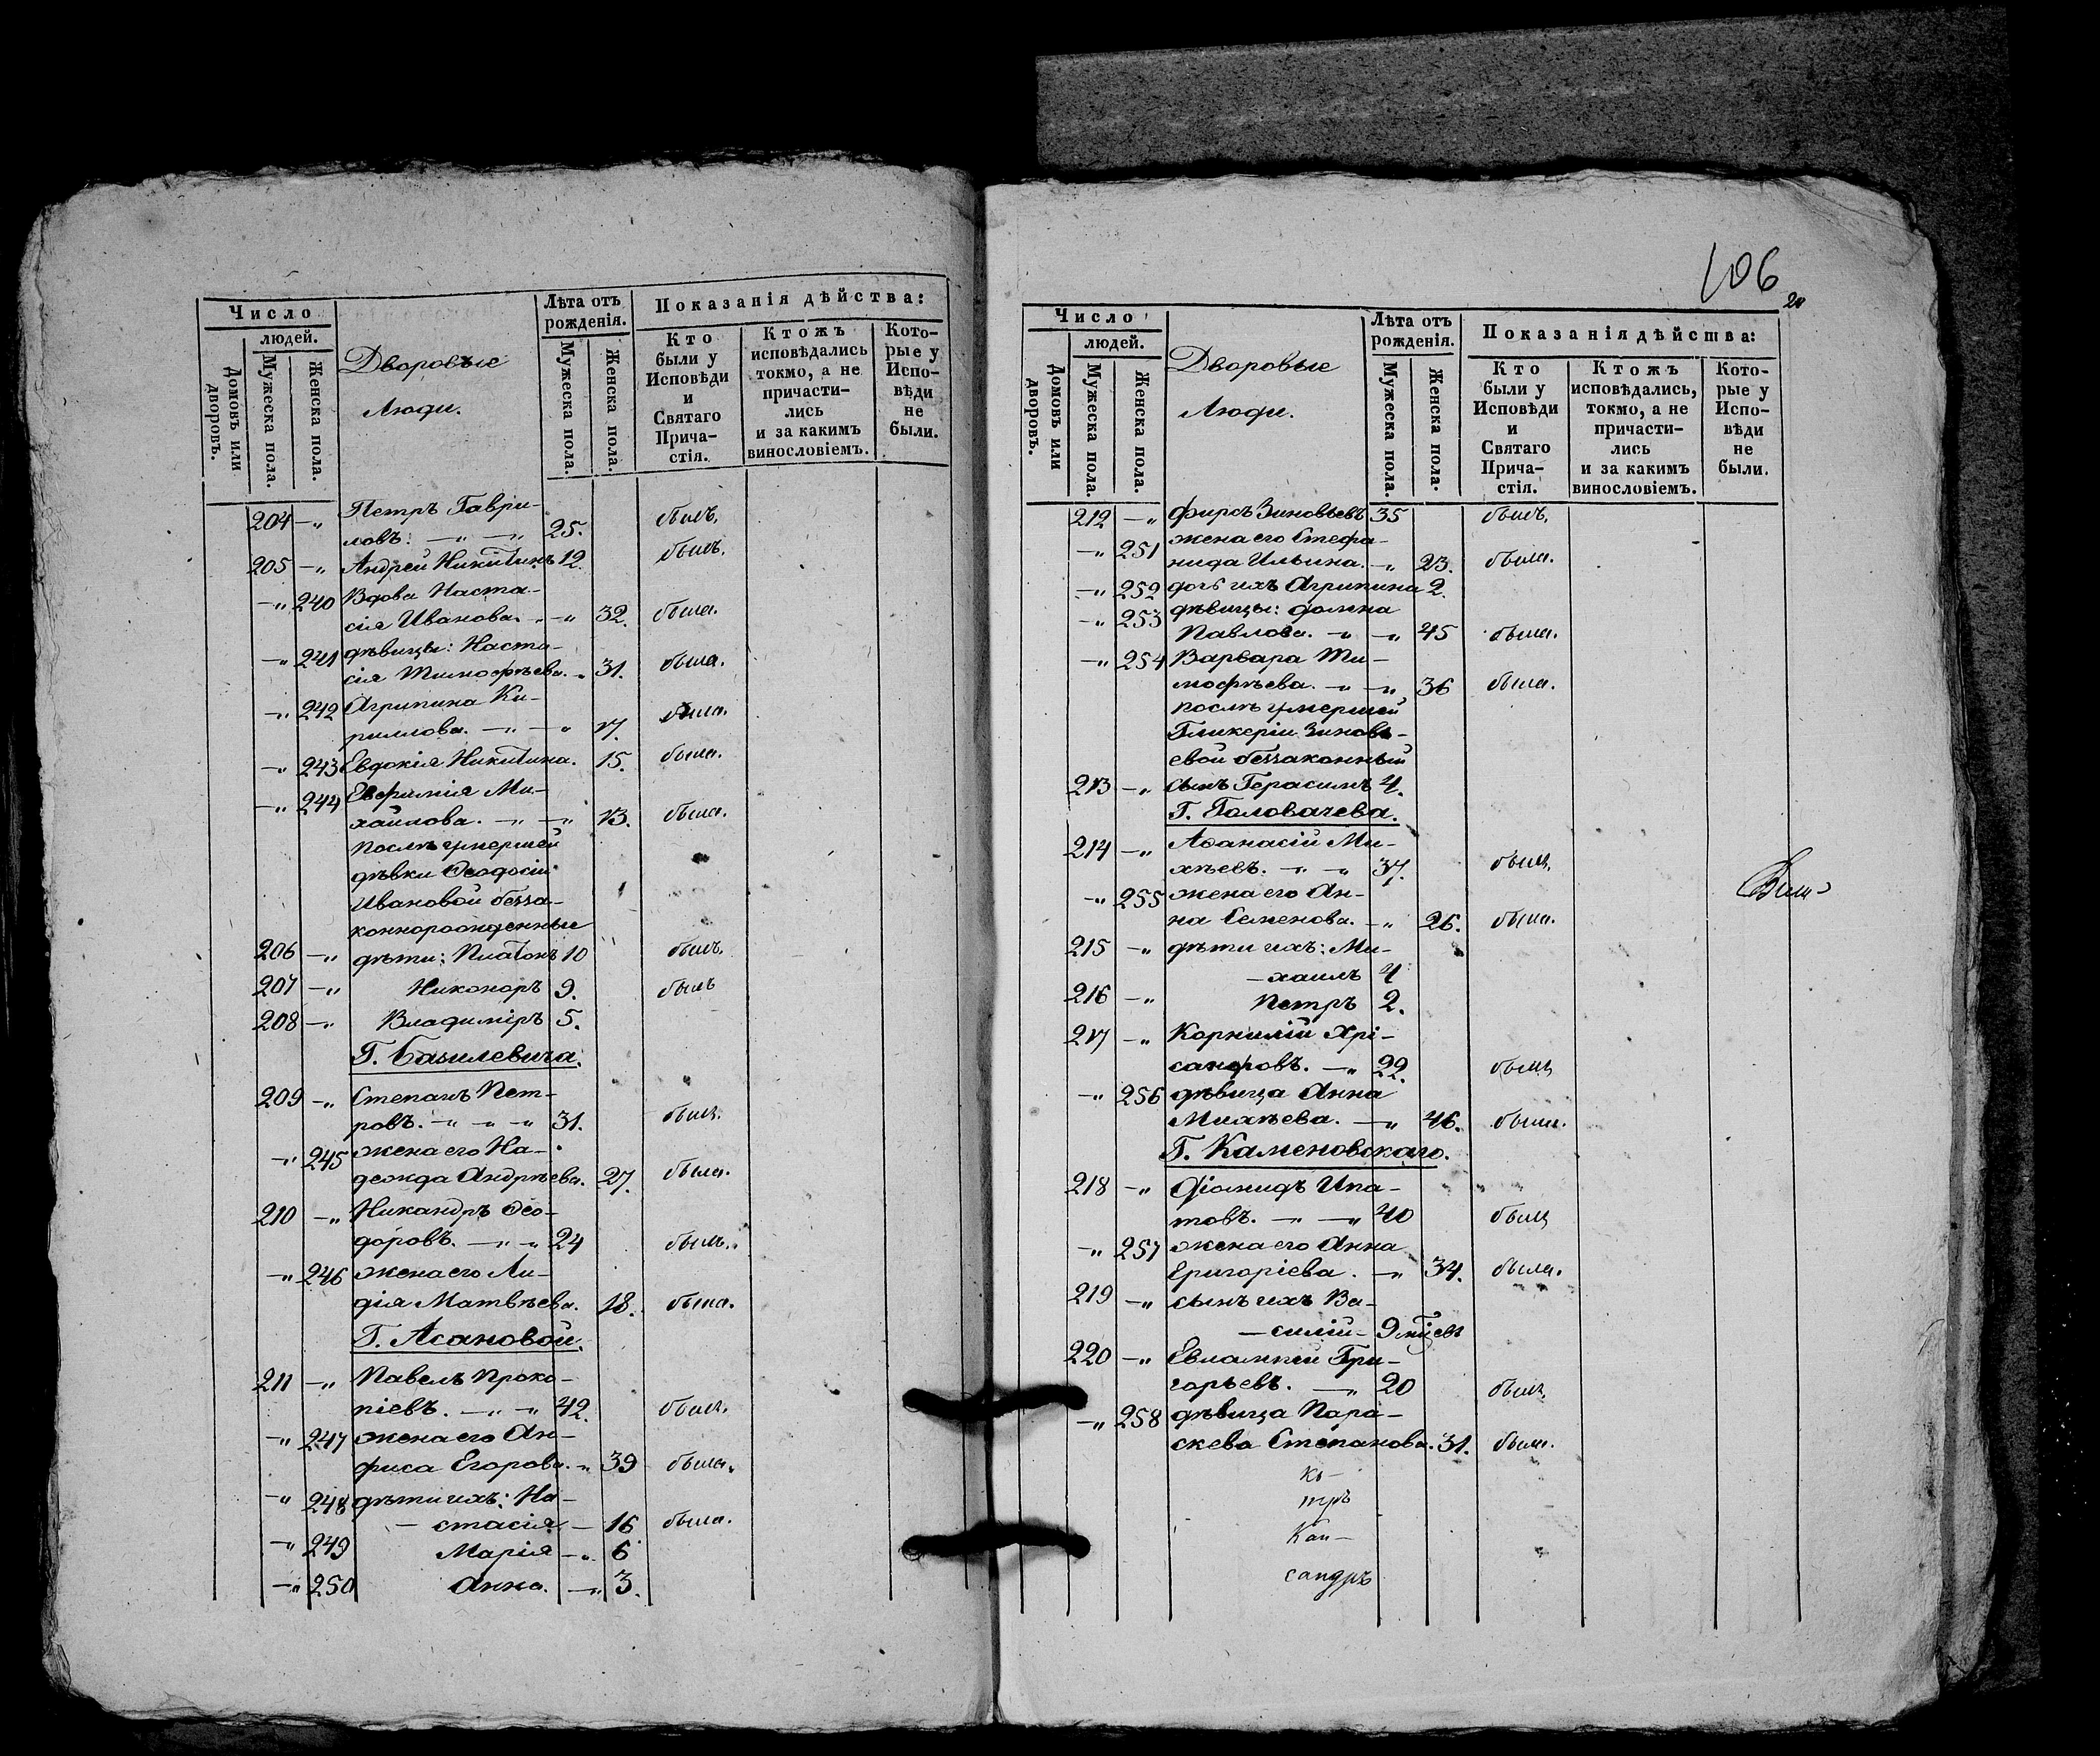 Число
людей.
Домовъ или дворовъ.
Мужеска пола.
Женска пола.
Дворовые
Люди.
Лѣта отъ
рожденія.
Мужеска пола.
Женска пола.
Показанія дѣйства:
Кто
были у
Исповѣди
и
Святаго
Прича-
стія.
Ктожъ
исповѣдались
токмо, а не
причасти-
лись
и за какимъ
винословіемъ.
Кото-
рые у
Испо-
вѣди
не
были.
204 —„ Петръ Гаври-
ловъ. —„ —„ 25. былъ.
205 —„ Андрей Никитинъ 12. былъ.
—„ 240 Вдова Наста-
сія Иванова. —„ 32. была.
—„ 241 дѣвицы: Наста-
сія Тимофѣева. „ 31. была.
—„ 242 Агрипина Ки-
риллова. —„ —„ 17. была.
—„ 243 Евдокія Никитина. 15. была.
—„ 244 Евфимія Ми-
хайлова. —„ —„ 13. была.
послѣ умершей
дѣвки Ѳеодосіи
Ивановой безза-
коннорожденные
206 —„ дѣти: Платонъ 10 былъ.
207 —„ Никоноръ 9. былъ
208 —„ Владиміръ 5.
Г. Базилевича.
209 —„ Степанъ Пет-
ровъ. —„ —„ —„ 31. былъ.
—„ 245 жена его На-
дежда Андрѣева. 27. была.
210 —„ Никандръ Ѳео-
доровъ. —„ —„ 24 былъ.
—„ 246 жена его Ли-
дія Матвѣева. 18. была.
Г. Асановой.
211 —„ Павелъ Проко-
піевъ. —„ —„ 42. былъ.
—„ 247 жена его Ан-
фиса Егорова. —„ 39 была.
—„ 248 дѣти ихъ: На-
— стасія — 16 была.
—„ 249 Марія —„ 6
—„ 250 Анна. —„ 3.
106
20
Число
людей.
Домовъ или дворовъ.
Мужеска пола.
Женска пола.
Дворовые
Люди.
Лѣта отъ
рожденія.
Мужеска пола.
Женска пола.
Показанія дѣйства:
Кто
были у
Исповѣди
и
Святаго
Прича-
стія.
Ктожъ
исповѣдались,
токмо, а не
причасти-
лись
и за какимъ
винословіемъ.
Кото-
рые у
Испо-
вѣди
не
были.
212 —„ Фирсъ Зиновьевъ 35 былъ.
—„ 251 жена его Стефа-
нида Ильина. —„ 23. была.
—„ 252 дочь ихъ Агрипина 2.
—„ 253 дѣвицы: Домна
Павлова. —„ —„ 45 была.
—„ 254 Варвара Ти-
мофѣева. —„ —„ 36 была.
послѣ умершей
Гликеріи Зиновь-
евой беззаконный
213 —„ сынъ Герасимъ 4.
Г. Головачева.
214 —„ Аѳанасій Ми-
хѣевъ. —„ —„ 37. былъ
—„ 255 жена его Ан-
на Семенова. —„ 26. была.
215 —„ дѣти ихъ: Ми-
— хаилъ 4
216 —„ Петръ 2.
217 —„ Корнилій Хрі-
санфовъ. —„ 22. былъ
—„ 256 дѣвица Анна
Михѣева. —„ 46. была.
Г. Каменовскаго.
218 —„ Діомидъ Ипа-
товъ. —„ —„ 40 былъ
—„ 257 жена его Анна
Григоріева. —„ 34. была.
219 —„ сынъ ихъ Ва-
— силій — 9 мцевъ
220 —„ Евлампій Гри-
горьевъ. —„ 20 былъ
—„ 258 дѣвица Пара-
скева Степанова. 31. была.
тръ
сандръ